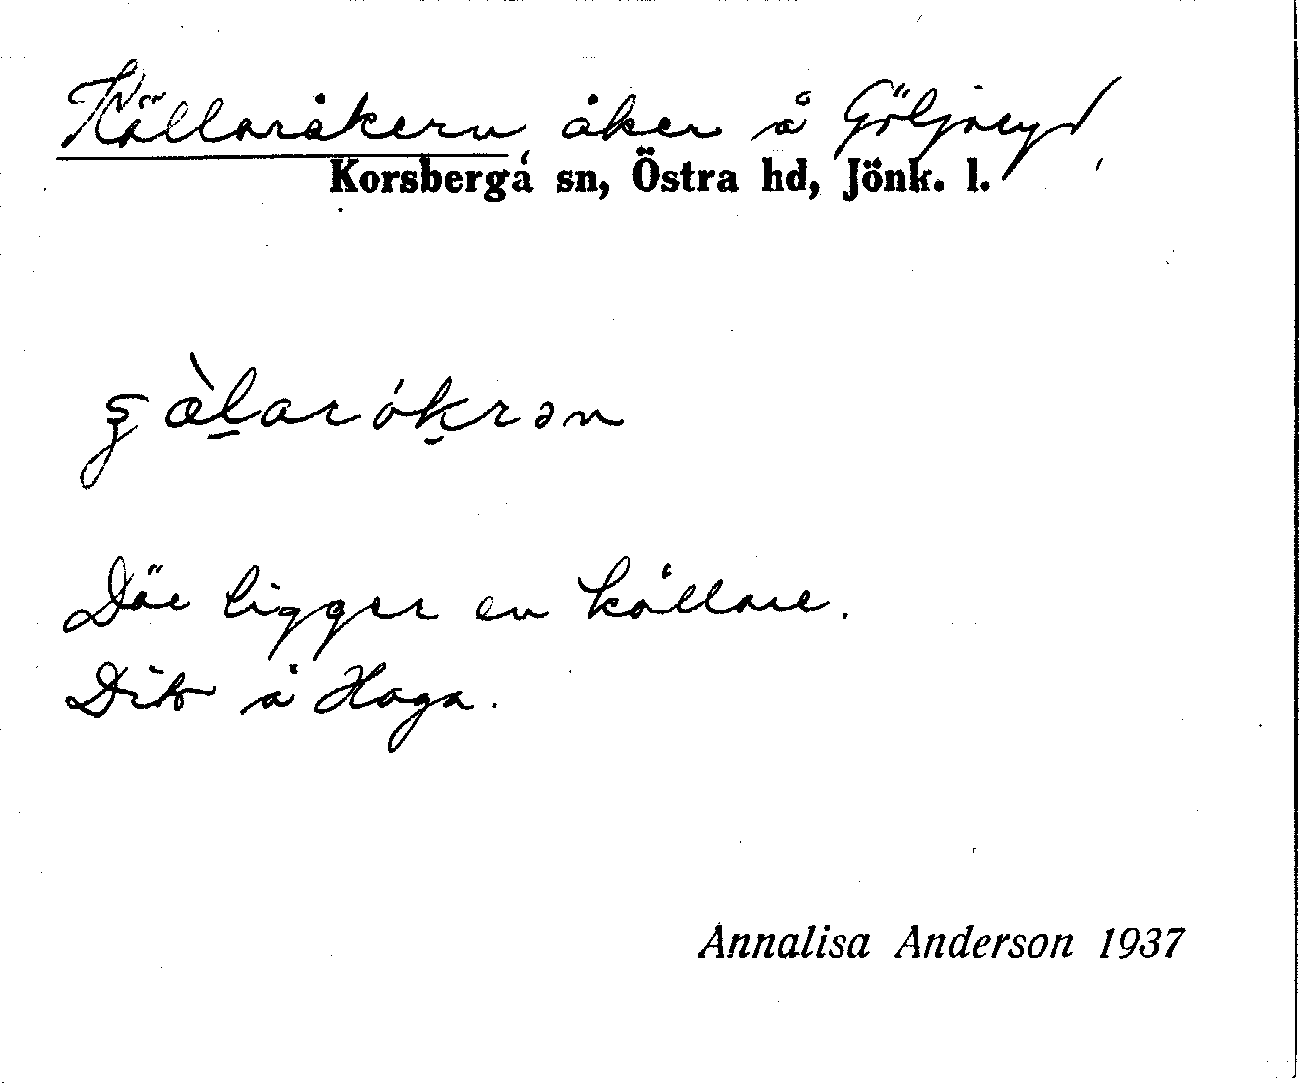 Källaråkern, åker å Göljaryd,
Korsberga sn, Östra hd, Jönk. l.
Där ligger en källare.
Dito å Haga.
Annalisa Anderson 1937